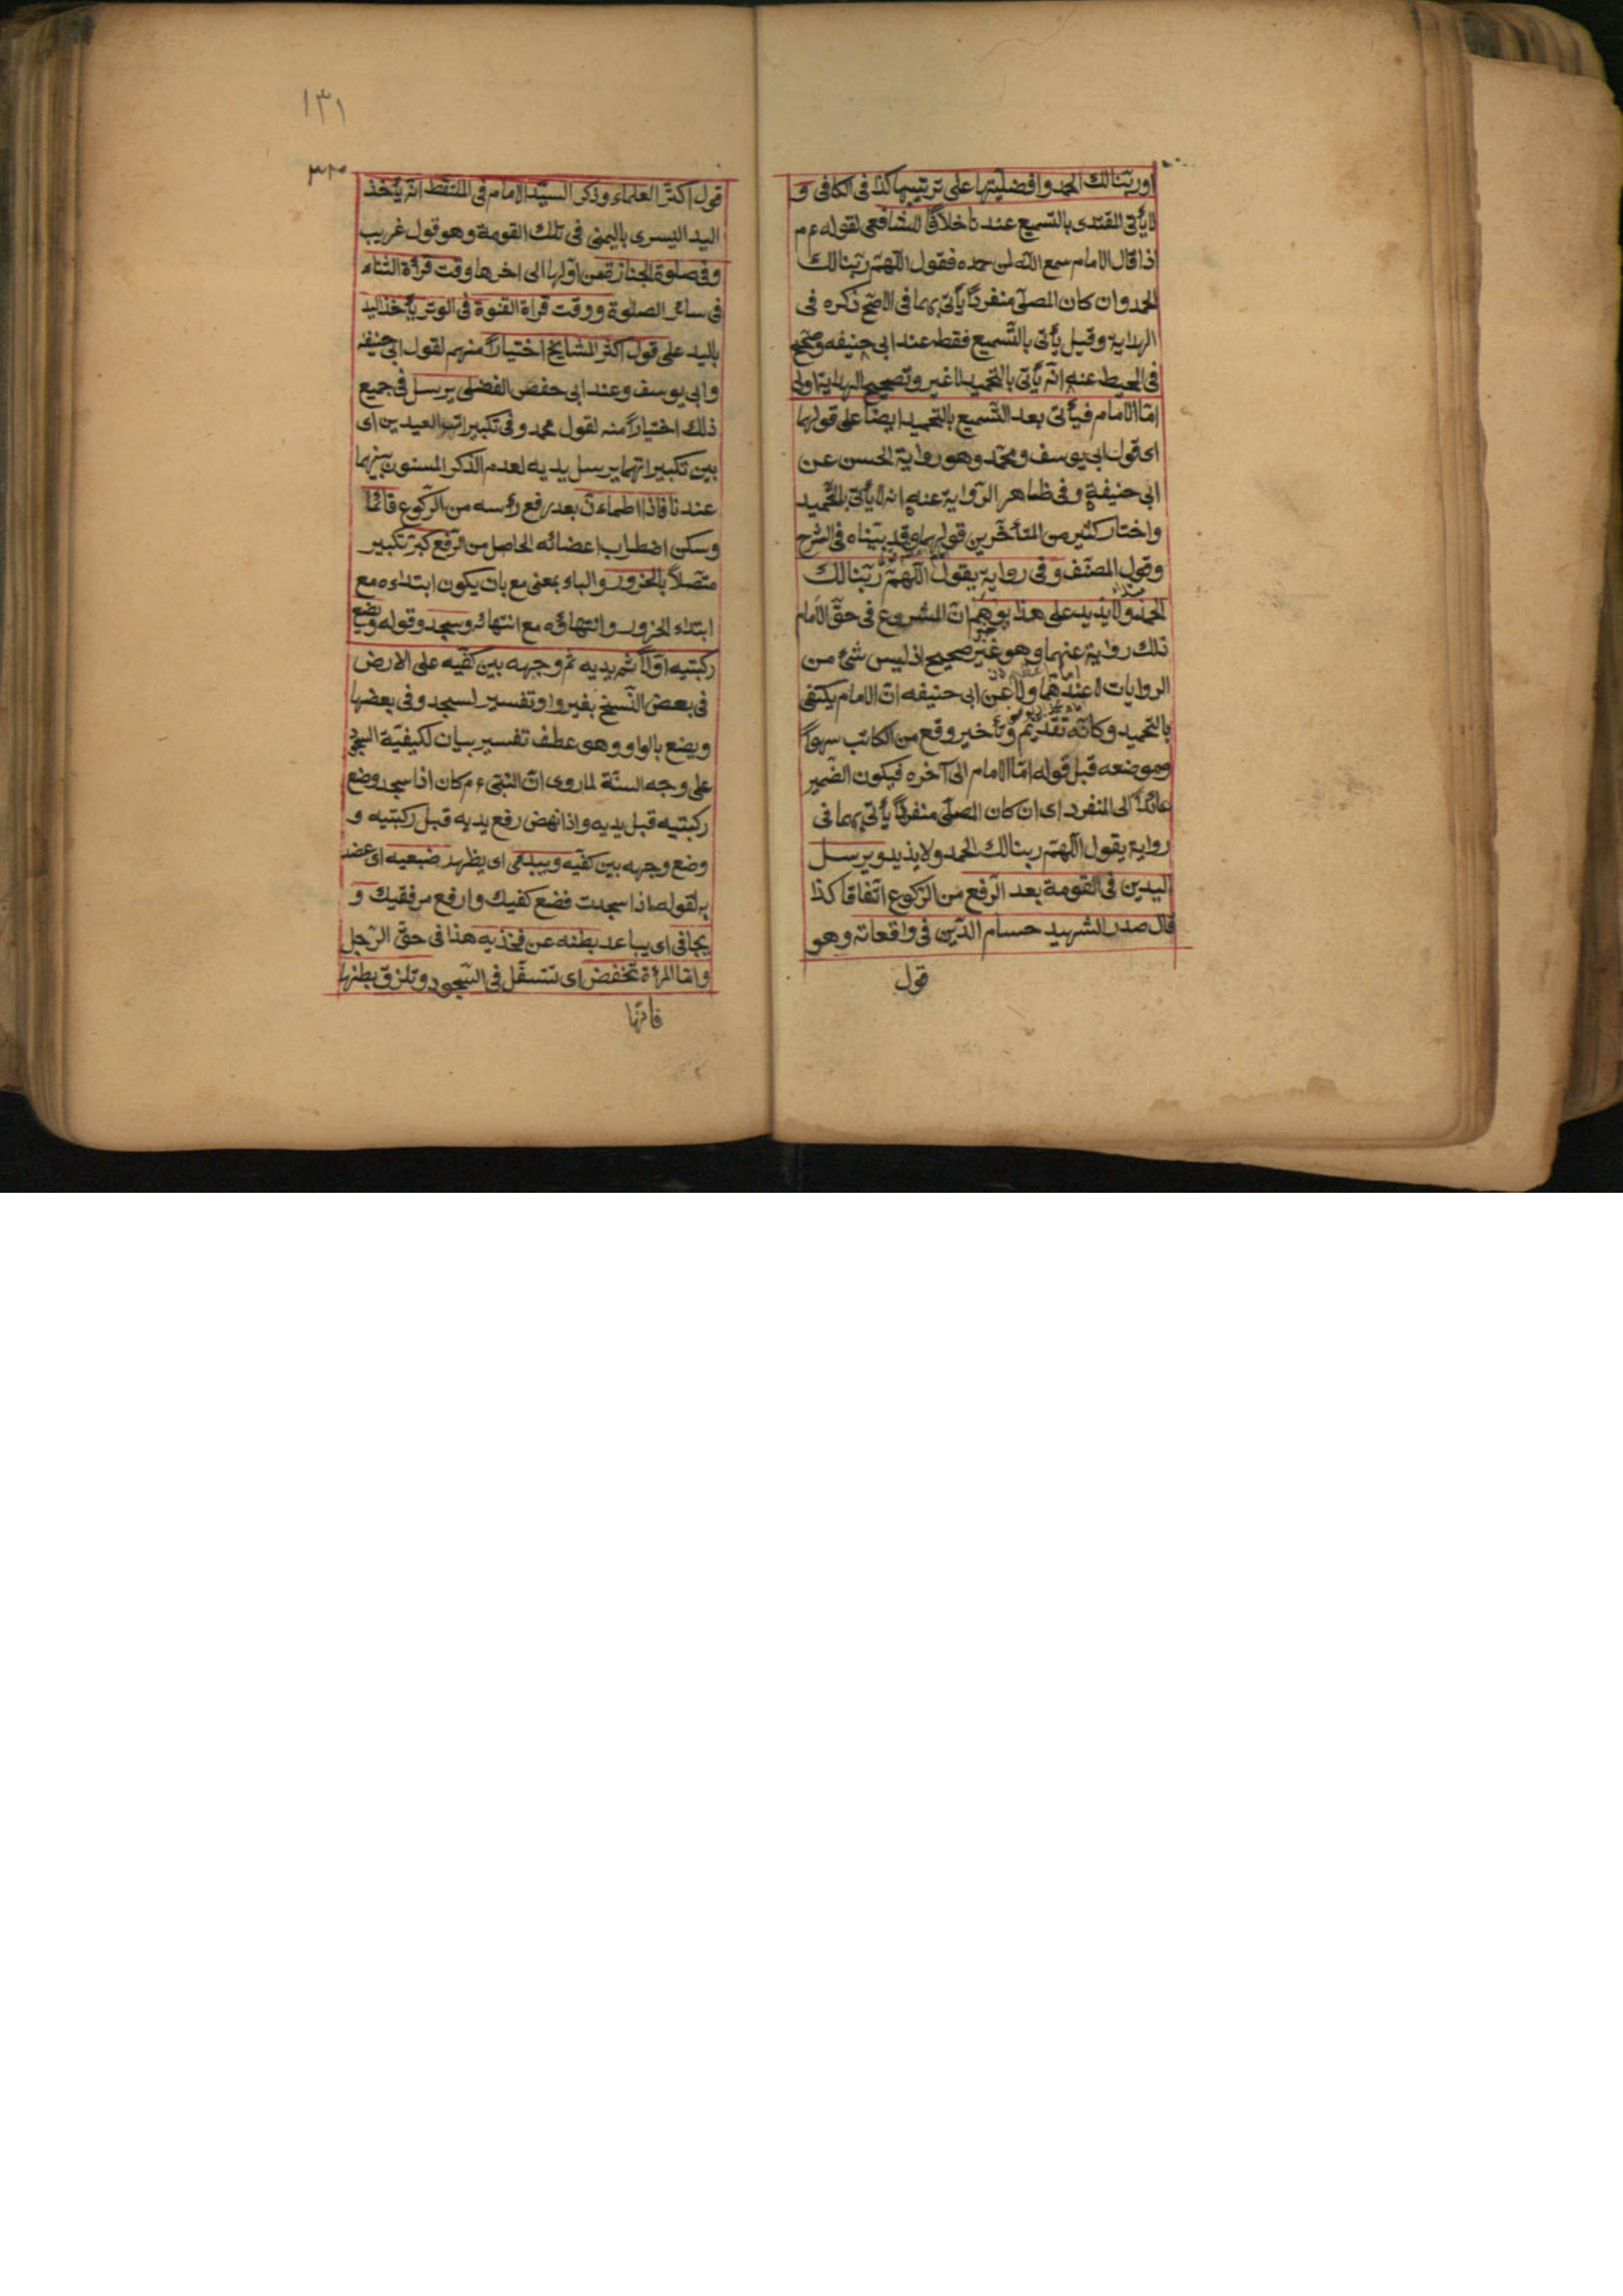 او ربّنا لك الحمد وافضليتها على ترتيبها كذا فى الكافى و
لا يأتى المقتدى بالتسميع عندنا خلافًا للشافعى لقوله عم
اذا قال الامام سمع اللّه لمن حمده فقولوا اللّهمّ ربّنا لك
الحمد وان كان المصلّى منفردًا يأتى بهما فى الاصحّ ذكره فى
الهداية وقيل يأتى بالتّسميع فقط عند ابى حنيفه وصحّح
فى المحيط عنه انّه يأتى بالتحميد لا غير وتصحيح الهداية اولى
امّا الامام فيأتى بعد التّسميع بالتحميد ايضًا على قولهما
اى قول ابى يوسف ومحمّد وهو رواية الحسن عن
ابى حنيفة وفى ظاهر الرّواية عنه انه لا يأتى بالتّحميد
واختار كثير من المتأخّرين قولهما وقد بيّناه فى الشرح
وقول المصنّف وفى رواية يقول اللّهمّ ربّنا لك
الحمد ولا يذيد على هذا يوهم انّ المشروع فى حقّ الامام
ذلك رواية عنهما وهو غير صحيح اذ ليس شئ من
الروايات لا عندهما ولا عن ابى حنيفه انّ الامام يكتفى
بالتحميد وكانّه تقديم وتأخير وقع من الكاتب سهوًا
وموضعه قبل قوله امّا الامام الى آخره فيكون الضّمير
عائدًا الى المنفرد اى ان كان المصلّى منفردًا يأتى بهما فى
رواية يقول اللّهمّ ربنا لك الحمد ولا يذيد ويرسل
اليدين فى القومة بعد الرّفع من الرّكوع اتّفاقا كذا
قال صدر الشهيد حسام الدّين فى واقعاته وهو
قول
١٣١
قول اكثر العلماء وذكر السيّد الامام فى الملتقط انّه يأخذ
اليد اليسرى باليمنى فى تلك القومة وهو قول غريب
وفى صلوة الجنازة من اوّلها الى اخرها وقت قرأة الثناء
فى سائر الصلوة ووقت قراة القنوة فى الوتر يأخذ اليد
باليد على قول اكثر المشايخ اختيارًا منهم لقول ابى حنيفه
وابى يوسف وعند ابى حفص الفضلى يرسل فى جميع
ذلك اختيارًا منه لقول محمد وفى تكبيرات العيدين اى
بين تكبيراتهما يرسل يديه لعدم الذكر المسنون بينهما
عندنا فاذا اطماءنّ بعد رفع رأسه من الرّكوع قائمًا
وسكن اضطراب اعضائه الحاصل من الرّفع كبّر تكبير
متّصلًا بالخرور والباء بمعنى مع بان يكون ابتداءه مع
ابتداء الخرور وانتهاؤه مع انتهائه ويسجد وقوله ويضع
ركبتيه اوّلًا ثم يديه ثم وجهه بين كفّيه على الارض
فى بعض النّسخ بغير واو تفسير ليسجد وفى بعضها
ويضع بالواو وهى عطف تفسير بيان لكيفيّة السجود
على وجه السنّة لما روى انّ النبىّ عم كان اذا سجد وضع
ركبتيه قبل يديه واذا نهض رفع يديه قبل ركبتيه و
وضع وجهه بين كفّيه ويبدى اى يظهر ضبعيه اى عضد
يه لقوله اذا سجدت فضع كفيك وارفع مرفقيك و
يجافى اى يباعد بطنه عن فخذيه هذا فى حقّ الرّجل
وامّا المرأة تنخفض اى تتسفّل فى السّجود وتلزق بطنها
فانّها